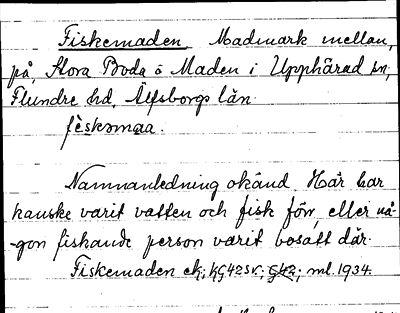 Fiskemaden Madmark mellan,
på, Stora Boda o Maden i Upphärad sn,
Flundre hd, Älfsborgs län.
fèskəmaa.
Namnanledning okänd. Här har
kanske varit vatten och fisk förr, eller nå-
-gon fiskande person varit bosatt där.
Fiskemaden ek; hG42sv; G42; ml. 1934.